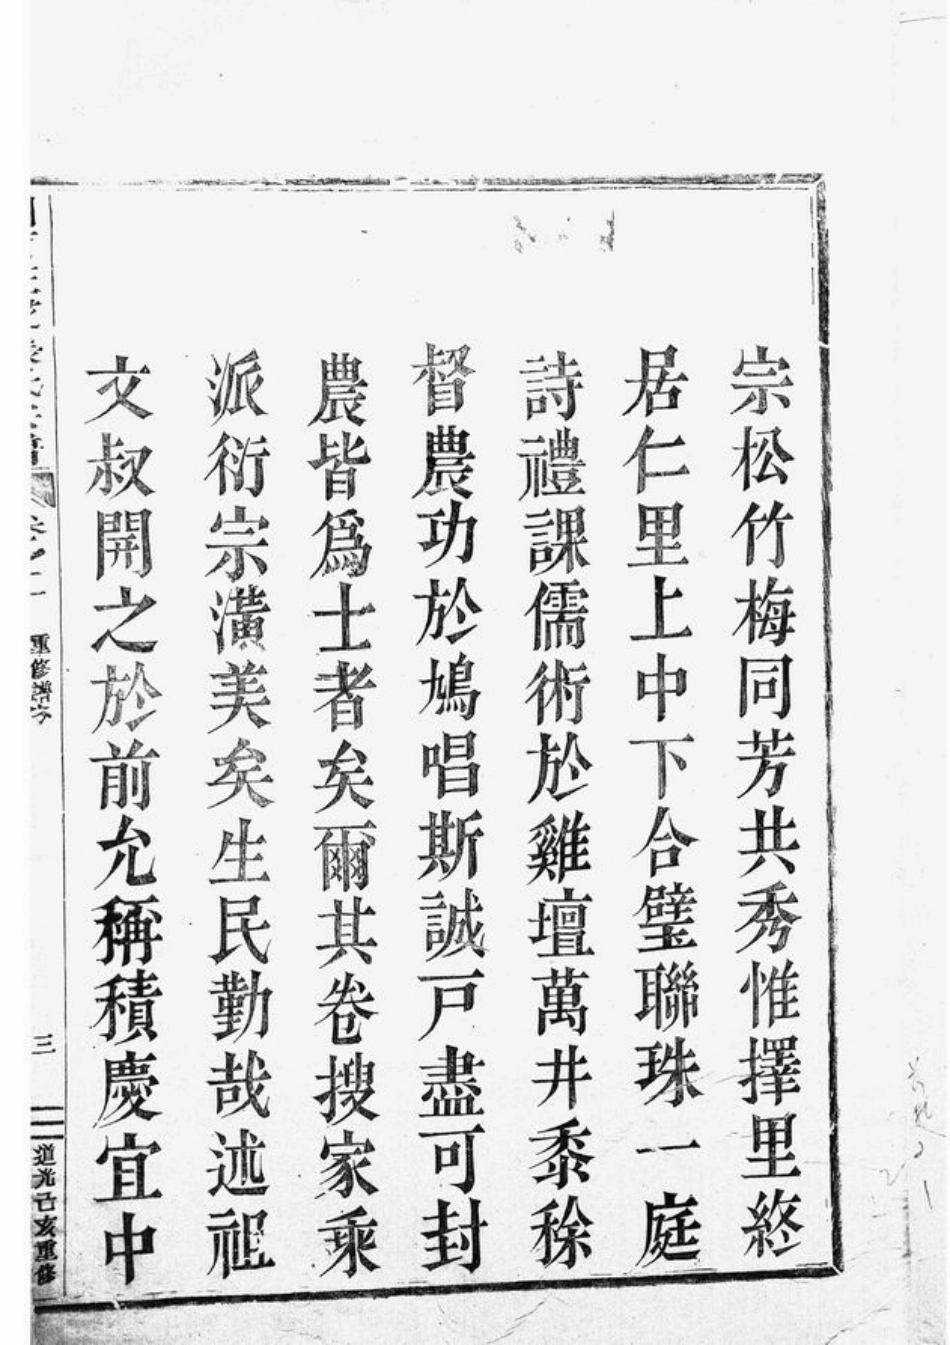 宗松竹梅同芳共秀惟擇里終
居仁里上中下合璧聯珠一庭
詩禮課儒術於雞壇萬井黍稌
督農功於鳩唱斯誠戸盡可封
農皆爲士者矣爾其卷搜家乘
派衍宗潢美矣生民勤哉述祖
文叔開之於前允稱積慶宜中
重修譜序
三
道光己亥重修